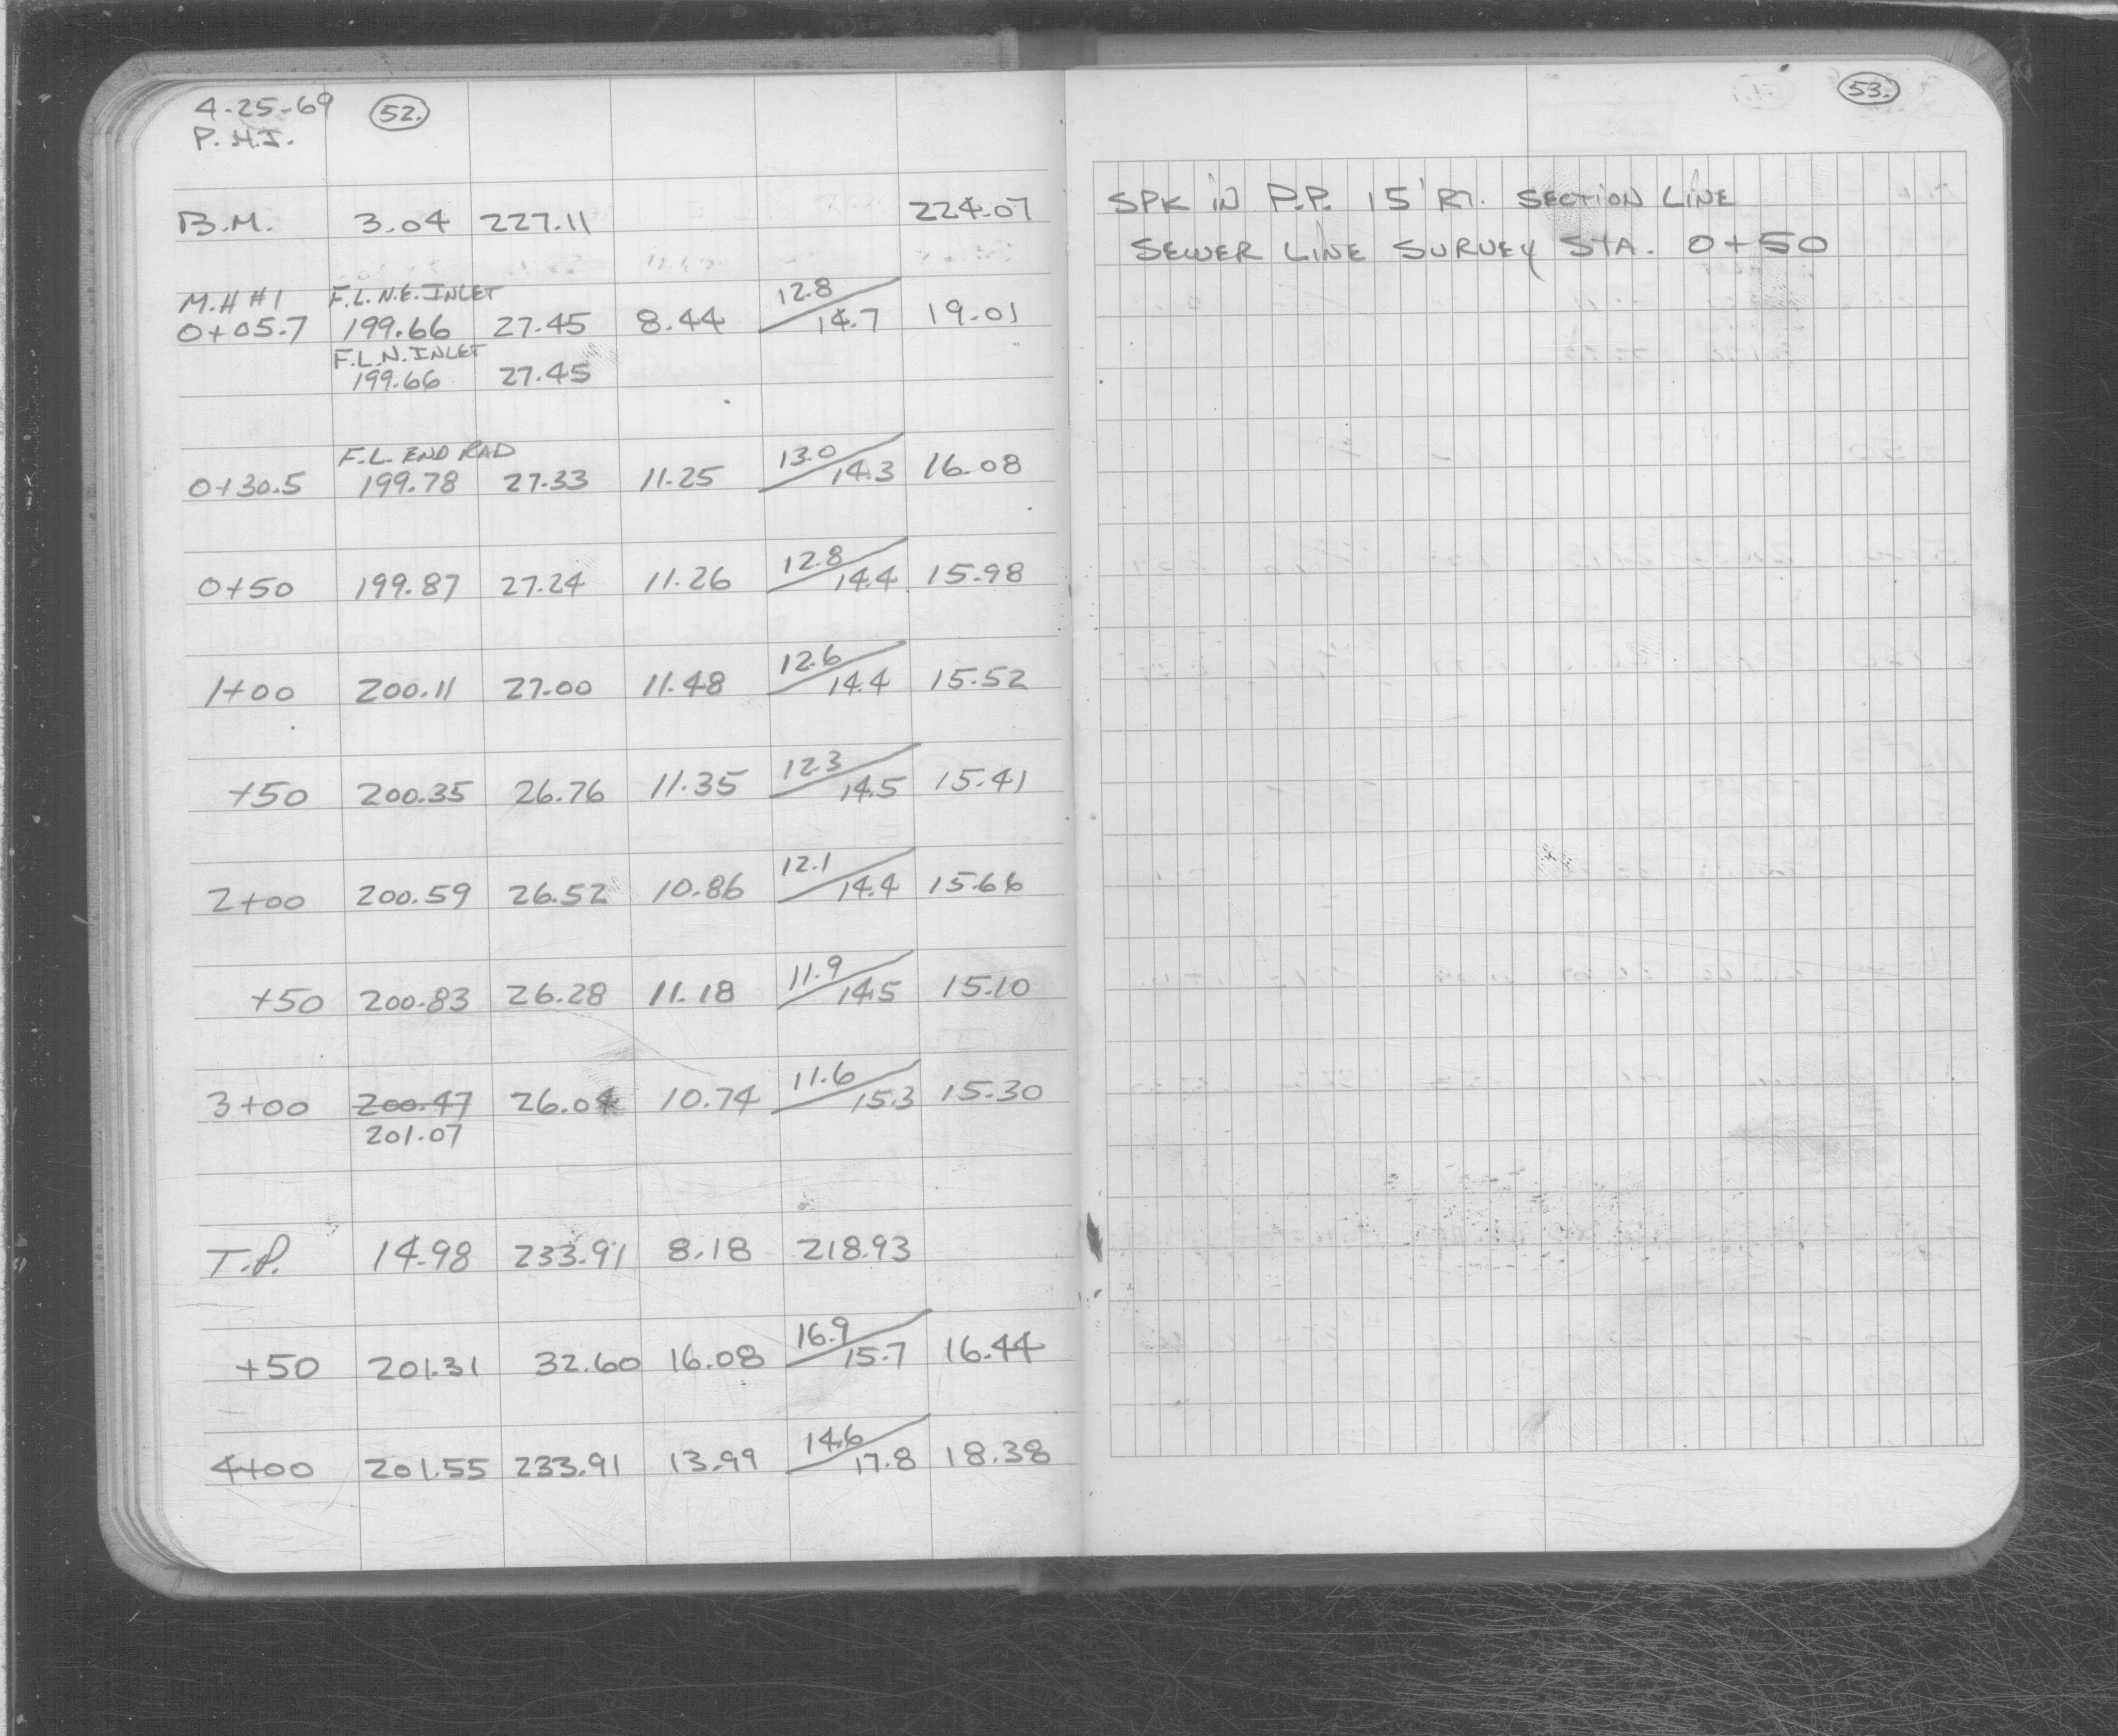 4-25-69 52.
P.H.I.
B.M. 3.04 227.11 224.07
M.H #1 F.L. N.E. INLET 12.8
0+05.7 199.66 27.45 8.44 14.7 19.01
F.L. N. INLET
199.66 27.45
F.L. END RAD 13.0
0+30.5 199.78 27.33 11.25 14.3 16.08
12.8
0+50 199.87 27.24 11.26 14.4 15.98
12.6
1+00 200.11 27.00 11.48 14.4 15.52
12.3
+50 200.35 26.76 11.35 14.5 15.41
12.1
2+00 200.59 26.52 10.86 14.4 15.66
11.9
+50 200.83 26.28 11.18 14.5 15.10
11.6
3+00 200.47 26.04 10.74 15.3 15.30
201.07
T.P. 14.98 233.91 8.18 218.93
16.9
+50 201.31 32.60 16.08 15.7 16.44
14.6
4+00 201.55 233.91 13.99 17.8 18.38
53.
SPK IN P.P. 15' RT. SECTION LINE
SEWER LINE SURVEY STA. 0+50